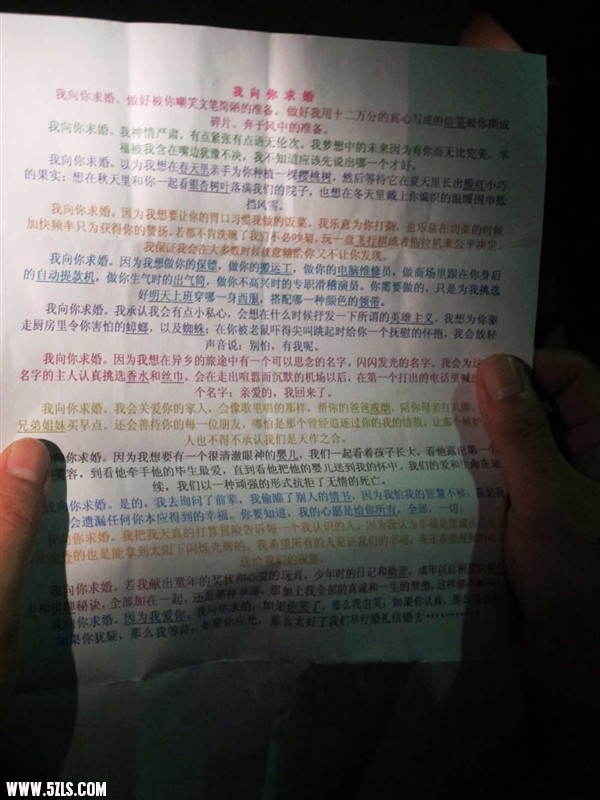 我向你求婚
我向你求婚。做好被你嘲笑文笔简陋的准备。做好我用十二万分的真心写成的信笺被你撕成
碎片、弃于风中的准备。
我向你求婚。我神情严肃，有点紧张有点语无伦次。我梦想中的未来因为有你而无比完美。幸
福被我含在嘴边犹豫不决，我不知道应该先说出哪一个才好。
我向你求婚。以为我想在春天里亲手为你种植一棵樱桃树，然后等待它在夏天里长出殷红小巧
的果实；想在秋天里和你一起看银杏树叶落满我们的院子，也想在冬天里戴上你编织的温暖围巾抵
挡风雪。
我向你求婚。因为我想要让你的胃口习惯我做的饭菜。我乐意为你打杂，也乐意在切菜的时候
加快频率只为获得你的赞扬。若都不肯洗碗了我们不必吵架，玩一盘飞行棋或者拖拉机来公平决定，
我保证我会在大多数时候故意输给你又不让你发现。
我向你求婚。因为我想做你的保镖，做你的搬运工，做你的电脑维修员，做商场里跟在你身后
的自动提款机，做你生气时的出气筒，做你不高兴时的专职滑稽演员。你需要做的，只是为我挑选
好明天上班穿哪一身西服，搭配哪一种颜色的领带。
我向你求婚。我承认我会有点小私心，会想在什么时候抒发一下所谓的英雄主义。我想为你驱
走厨房里令你害怕的蟑螂，以及蜘蛛；在你被老鼠吓得尖叫跳起时给你一个抚慰的怀抱，我会放轻
声音说：别怕，有我呢。
我向你求婚。因为我想在异乡的旅途中有一个可以思念的名字。闪闪发光的名字。我会为这
名字的主人认真挑选香水和丝巾。会在走出喧嚣而沉默的机场以后，在第一个打出的电话里喊出
个名字：亲爱的，我回来了。
我向你求婚。我会关爱你的家人，会像歌里唱的那样，帮你的爸爸戒烟，陪你母亲打
兄弟姐妹买早点。还会善待你的每一位朋友，哪怕是那个曾经追逐过你的我的情敌，让那个
人也不得不承认我们是天作之合。
我向你求婚。因为我想要有一个很清澈眼神的婴儿，我们一起看着孩子长大，看他露出第一
笑容，到看他牵手他的毕生最爱，直到看他把他的婴儿送到我的怀中，我们的爱和生命在延
续，我们以一种顽强的形式抗拒了无情的死亡。
我向你求婚。是的，我去询问了前辈，我偷瞄了别人的情书，因为我怕我的智慧不够，我怕我
会遗漏任何你本应得到的幸福。你要知道，我的心愿是给你所有，全部，一切。
我向你求婚。我把我天真的打算冒险告诉每一个我认识的人。因为我认为幸福是
的也是能拿到太阳下闪烁光辉的。我希望所有的人见证我们的幸福，
送给我们的祝愿。
我向你求婚。若我献出童年的奖状和心爱的玩具，少年时的日记和勋章，成年以后
秘诀，全部加在一起，还是那样单薄，那 加上我全部的真诚和一生的梦想，这样
我向你求婚。因为我爱你，我向你求婚，如果你笑了，那么我也笑；如果你认真，那么
如果你犹疑，那么我等待；如果你应允，那么太好了我们举行婚礼结婚去…………
WWW.5ZLS.COM